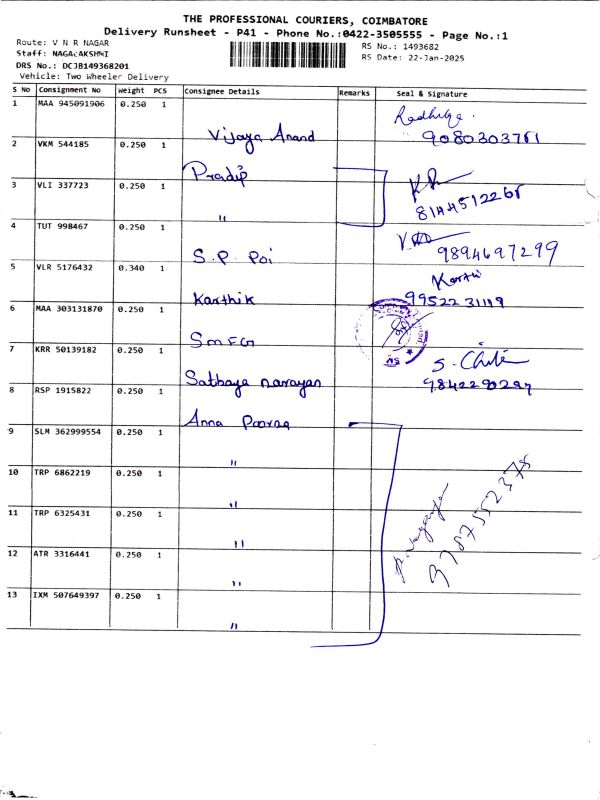 THE PROFESSIONAL COURIERS, COIMBATORE
Delivery Runsheet - P41 - Phone No.:0422-3505555 - Page No.:1
Route: V N R NAGAR
RS No.: 1493682
Staff: NAGALAKSHMI
RS Date: 22-Jan-2025
DRS No.: DCJB149368201
Vehicle: Two Wheeler Delivery
S No Consignment No Weight PCS Consignee Details Remarks Seal & Signature
1 MAA 945091906 0.250 1 Vijaya Anand
2 VKM 544185 0.250 1 Pradip
3 VLI 337723 0.250 1 "
4 TUT 998467 0.250 1 S.P. Poi 9894697299
5 VLR 5176432 0.340 1 Karthik Karthi 99522 31119
6 MAA 303131870 0.250 1 SMFG
7 KRR 50139182 0.250 1 Sathaya narayan
8 RSP 1915822 0.250 1 Anna Poorna
9 SLM 362999554 0.250 1 "
10 TRP 6862219 0.250 1 "
11 TRP 6325431 0.250 1 "
12 ATR 3316441 0.250 1 "
13 IXM 507649397 0.250 1 "